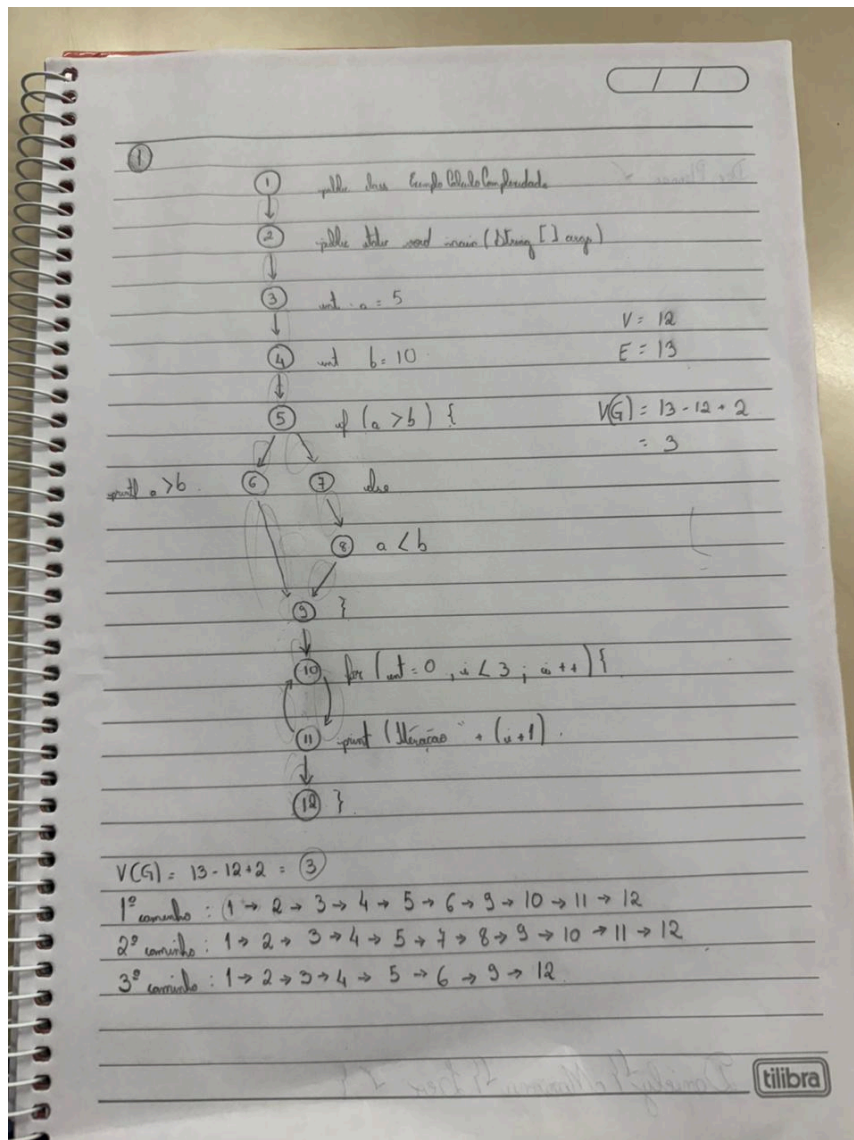 / /
1
1 public class ExemploCalculoComplexidade
2 public static void main (String [] args)
3 int a = 5
4 int b = 10
V = 12
E = 13
5 if (a > b) {
V(G) = 13 - 12 + 2
= 3
printl a > b. 6 7 else
8 a < b
9 }
10 for (int = 0, i < 3 ; i ++) {
11 print (Iteração " + (i + 1).
12 }.
V(G) = 13 - 12 + 2 = 3
1º caminho : 1 → 2 → 3 → 4 → 5 → 6 → 9 → 10 → 11 → 12
2º caminho : 1 → 2 → 3 → 4 → 5 → 7 → 8 → 9 → 10 → 11 → 12
3º caminho : 1 → 2 → 3 → 4 → 5 → 6 → 9 → 12
tilibra